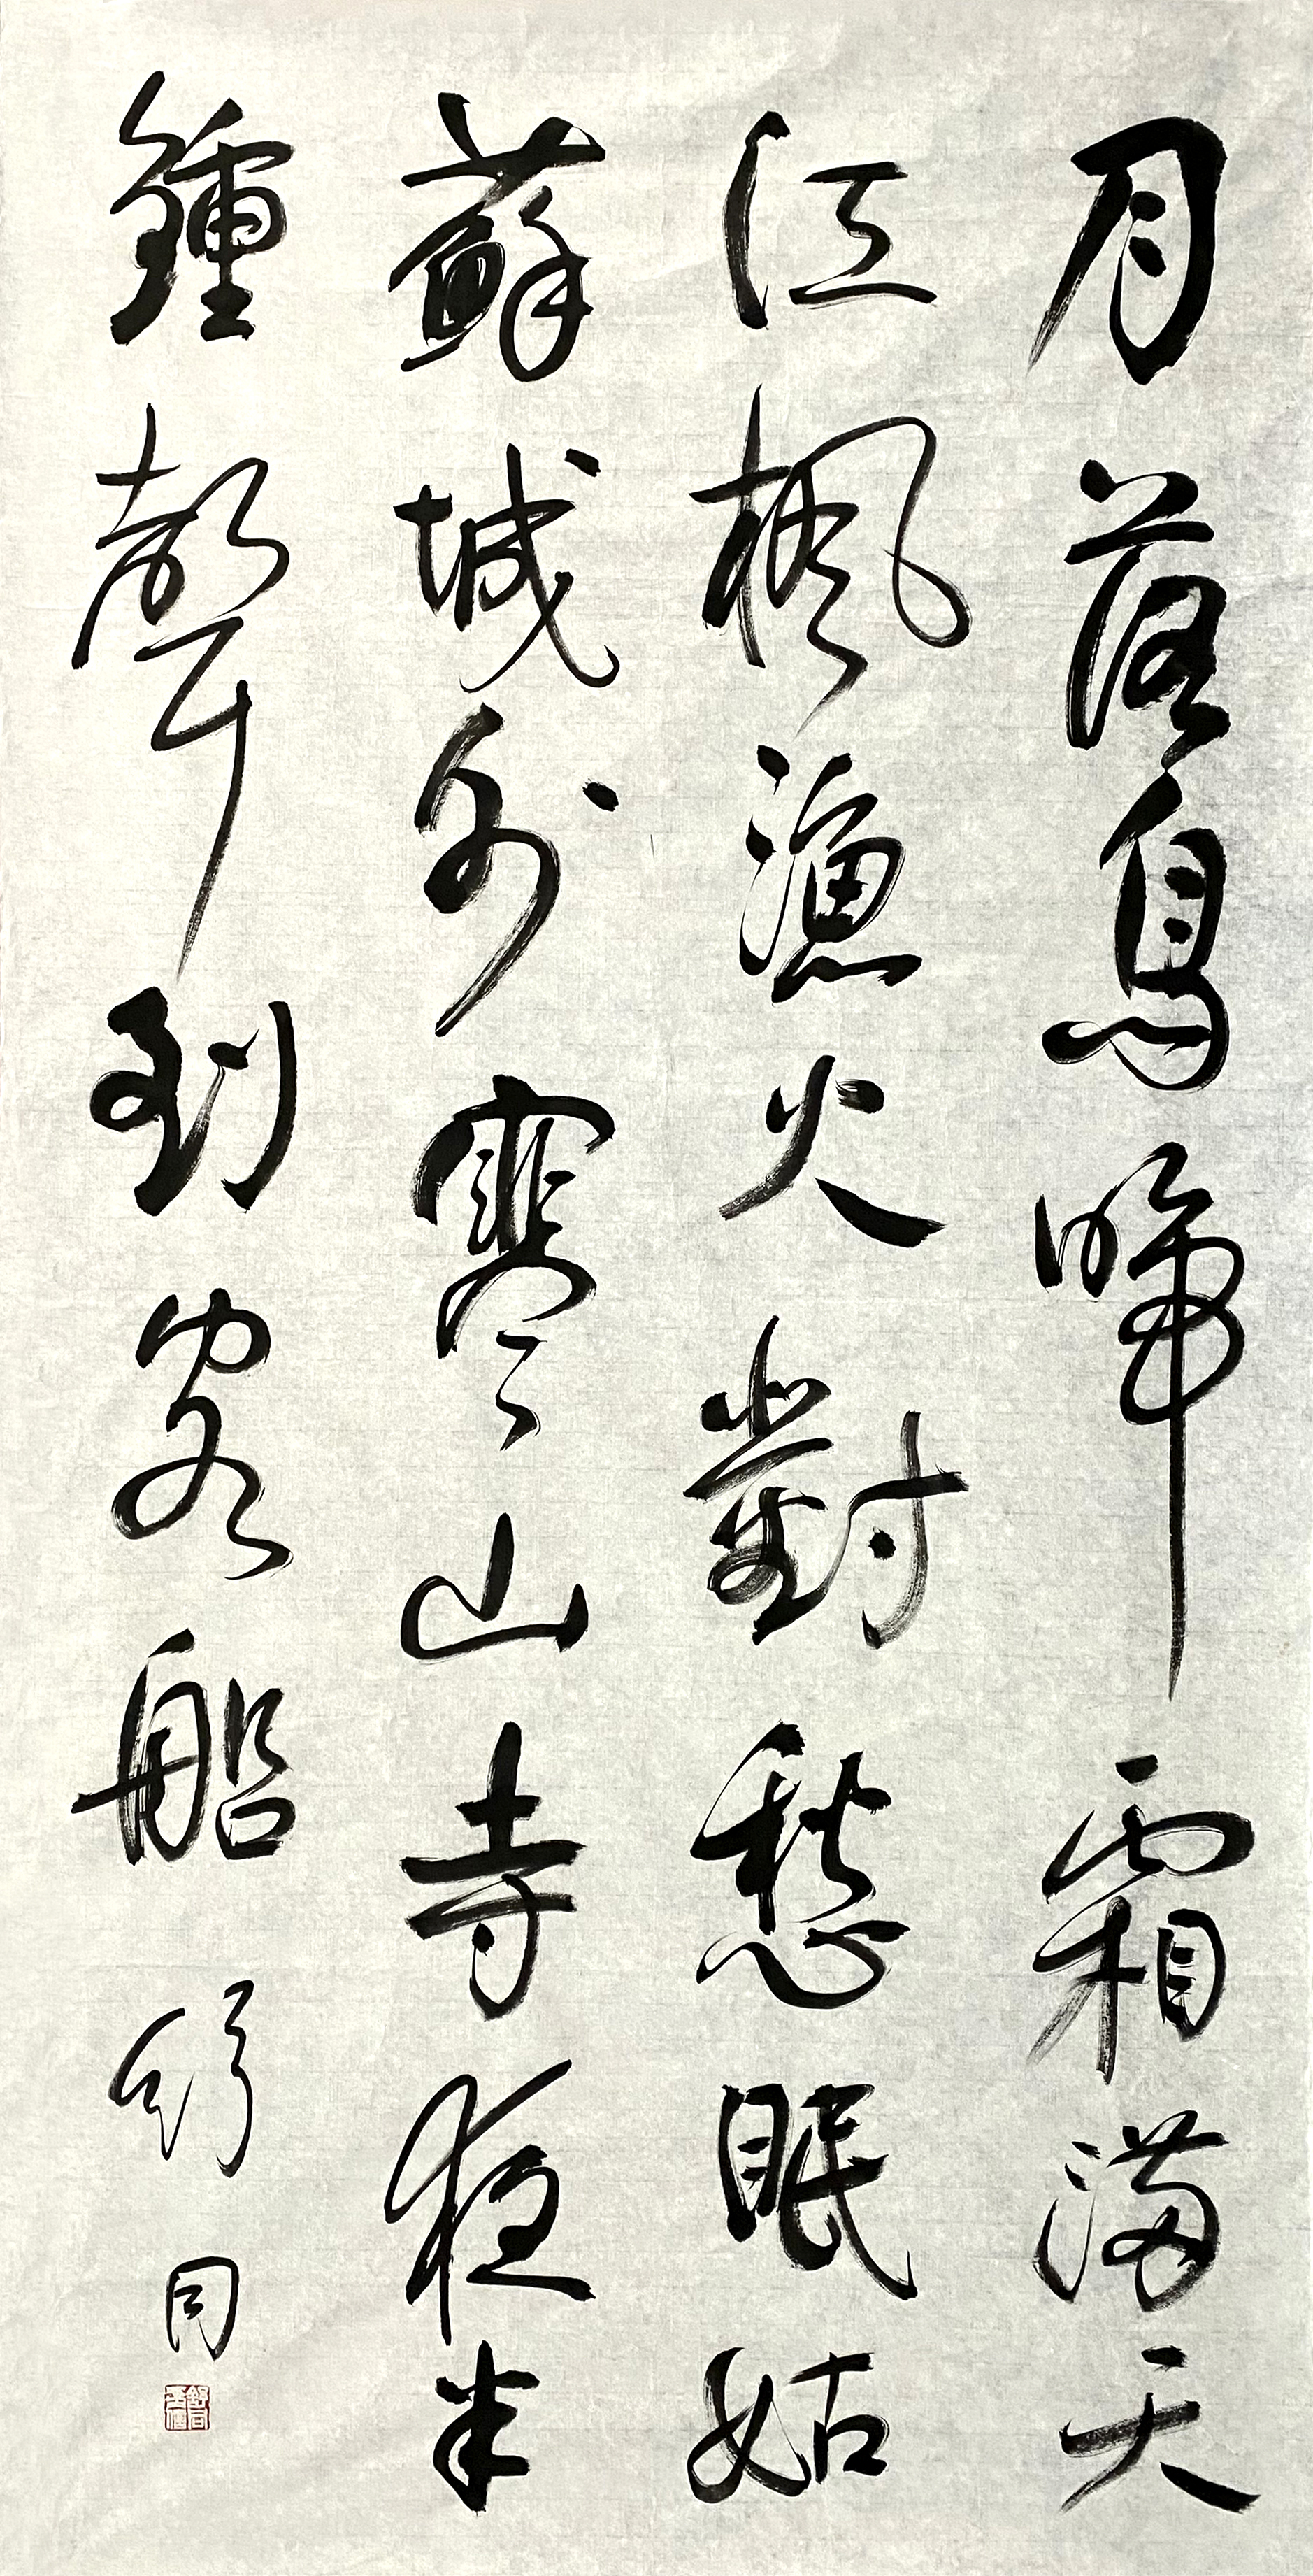 月落烏啼霜滿天
江楓漁火對愁眠姑
蘇城外寒山寺夜半
鍾聲到客船 舒同